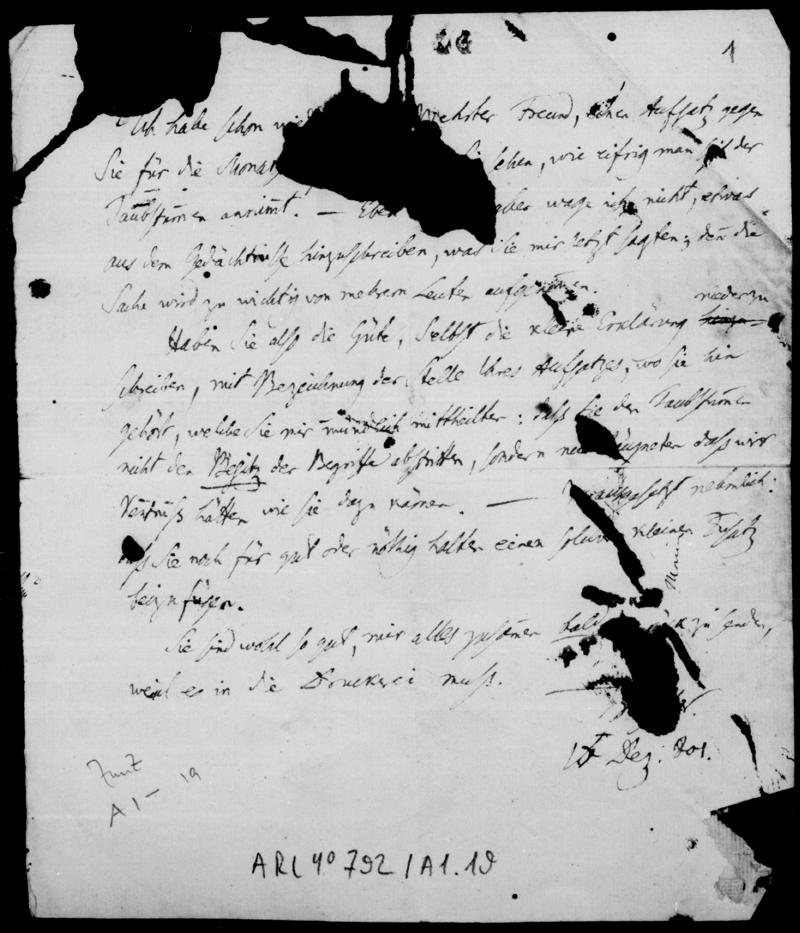 1
Ich habe schon Freund, einen Aufsatz gegen
Sie für die sehen, wie eifrig man sich der
Taubstummen annimt. — aber wage ich nicht, etwas
aus dem Gedächtnisse hinzuschreiben, was Sie mir jetzt sagten; den die
Sache wird zu wichtig von mehrern Leuten aufgenommen.
Haben Sie also die Güte, Selbst die kleine Erklärung niederzu
schreiben, mit Bezeichnung der Stelle Ihres Aufsatzes, wo sie hin
gehört, welche Sie mir mündlich mittheilten: dass Sie den Taubstummen
nicht den Besitz der Begriffe abstritten, sondern nur läugneten dass wir
wie sie dazu kämen. — Vorausgesetzt nehmlich:
dass Sie noch für gut oder nöthig halten einen solchen kleinen Zusatz
beizufügen.
Sie sind wohl so gut, mir alles zusammen bald zu senden,
weil es in die Druckerei muss.
Dez. 801.
Zunz
A 1 — 19
ARC 4° 792 / A1.19